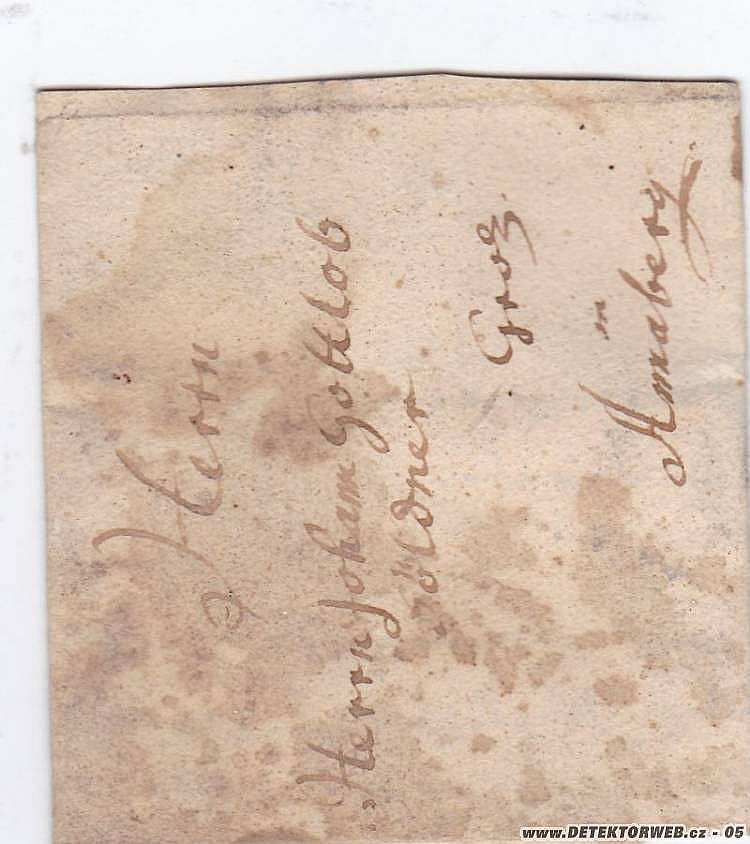 Herrn
Herrn Joham Gottlob
Göldner
Groz.
in
Annaberg.
www.DETEKTORWEB.cz - 05